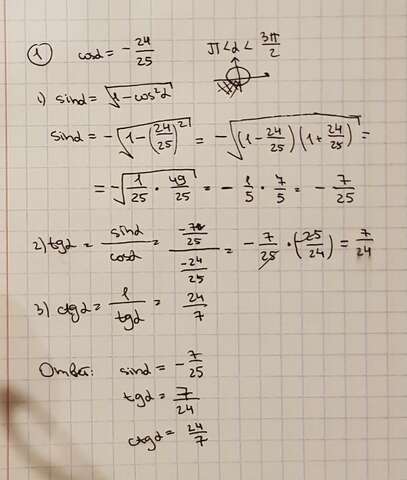 ① cosα = -24/25   π<α<3π/2
1) sinα = √(1-cos²α)
sinα = -√(1-(24/25)²) = -√((1-24/25)(1+24/25)) =
= -√(1/25 · 49/25) = -1/5 · 7/5 = -7/25
2) tgα = sinα/cosα = (-7/25)/(-24/25) = -7/25 · (-25/24) = 7/24
3) ctgα = 1/tgα = 24/7
Ответ: sinα = -7/25
tgα = 7/24
ctgα = 24/7